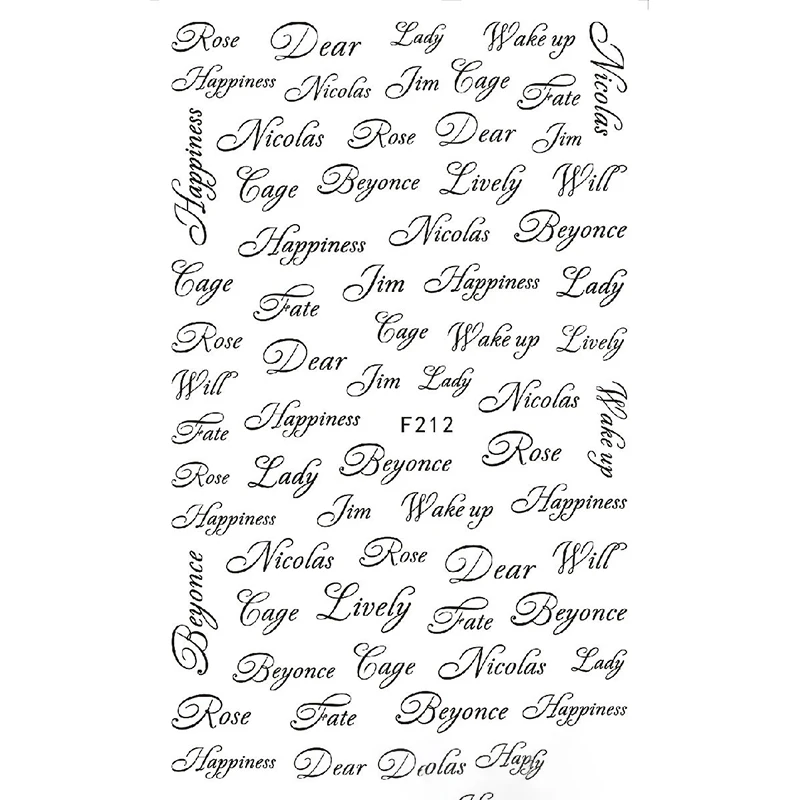 Rose Dear Lady Wake up Nicolas
Happiness Nicolas Jim Cage Fate
Happiness Nicolas Rose Dear Jim
Cage Beyonce Lively Will
Happiness Nicolas Beyonce
Cage Fate Jim Happiness Lady
Rose Dear Cage Wake up Lively
Will Jim Lady Nicolas Wake up
Fate Happiness F212 Rose
Rose Lady Beyonce
Happiness Jim Wake up Happiness
Beyonce Nicolas Rose Dear Will
Cage Lively Fate Beyonce
Beyonce Cage Nicolas Lady
Rose Fate Beyonce Happiness
Happiness Dear